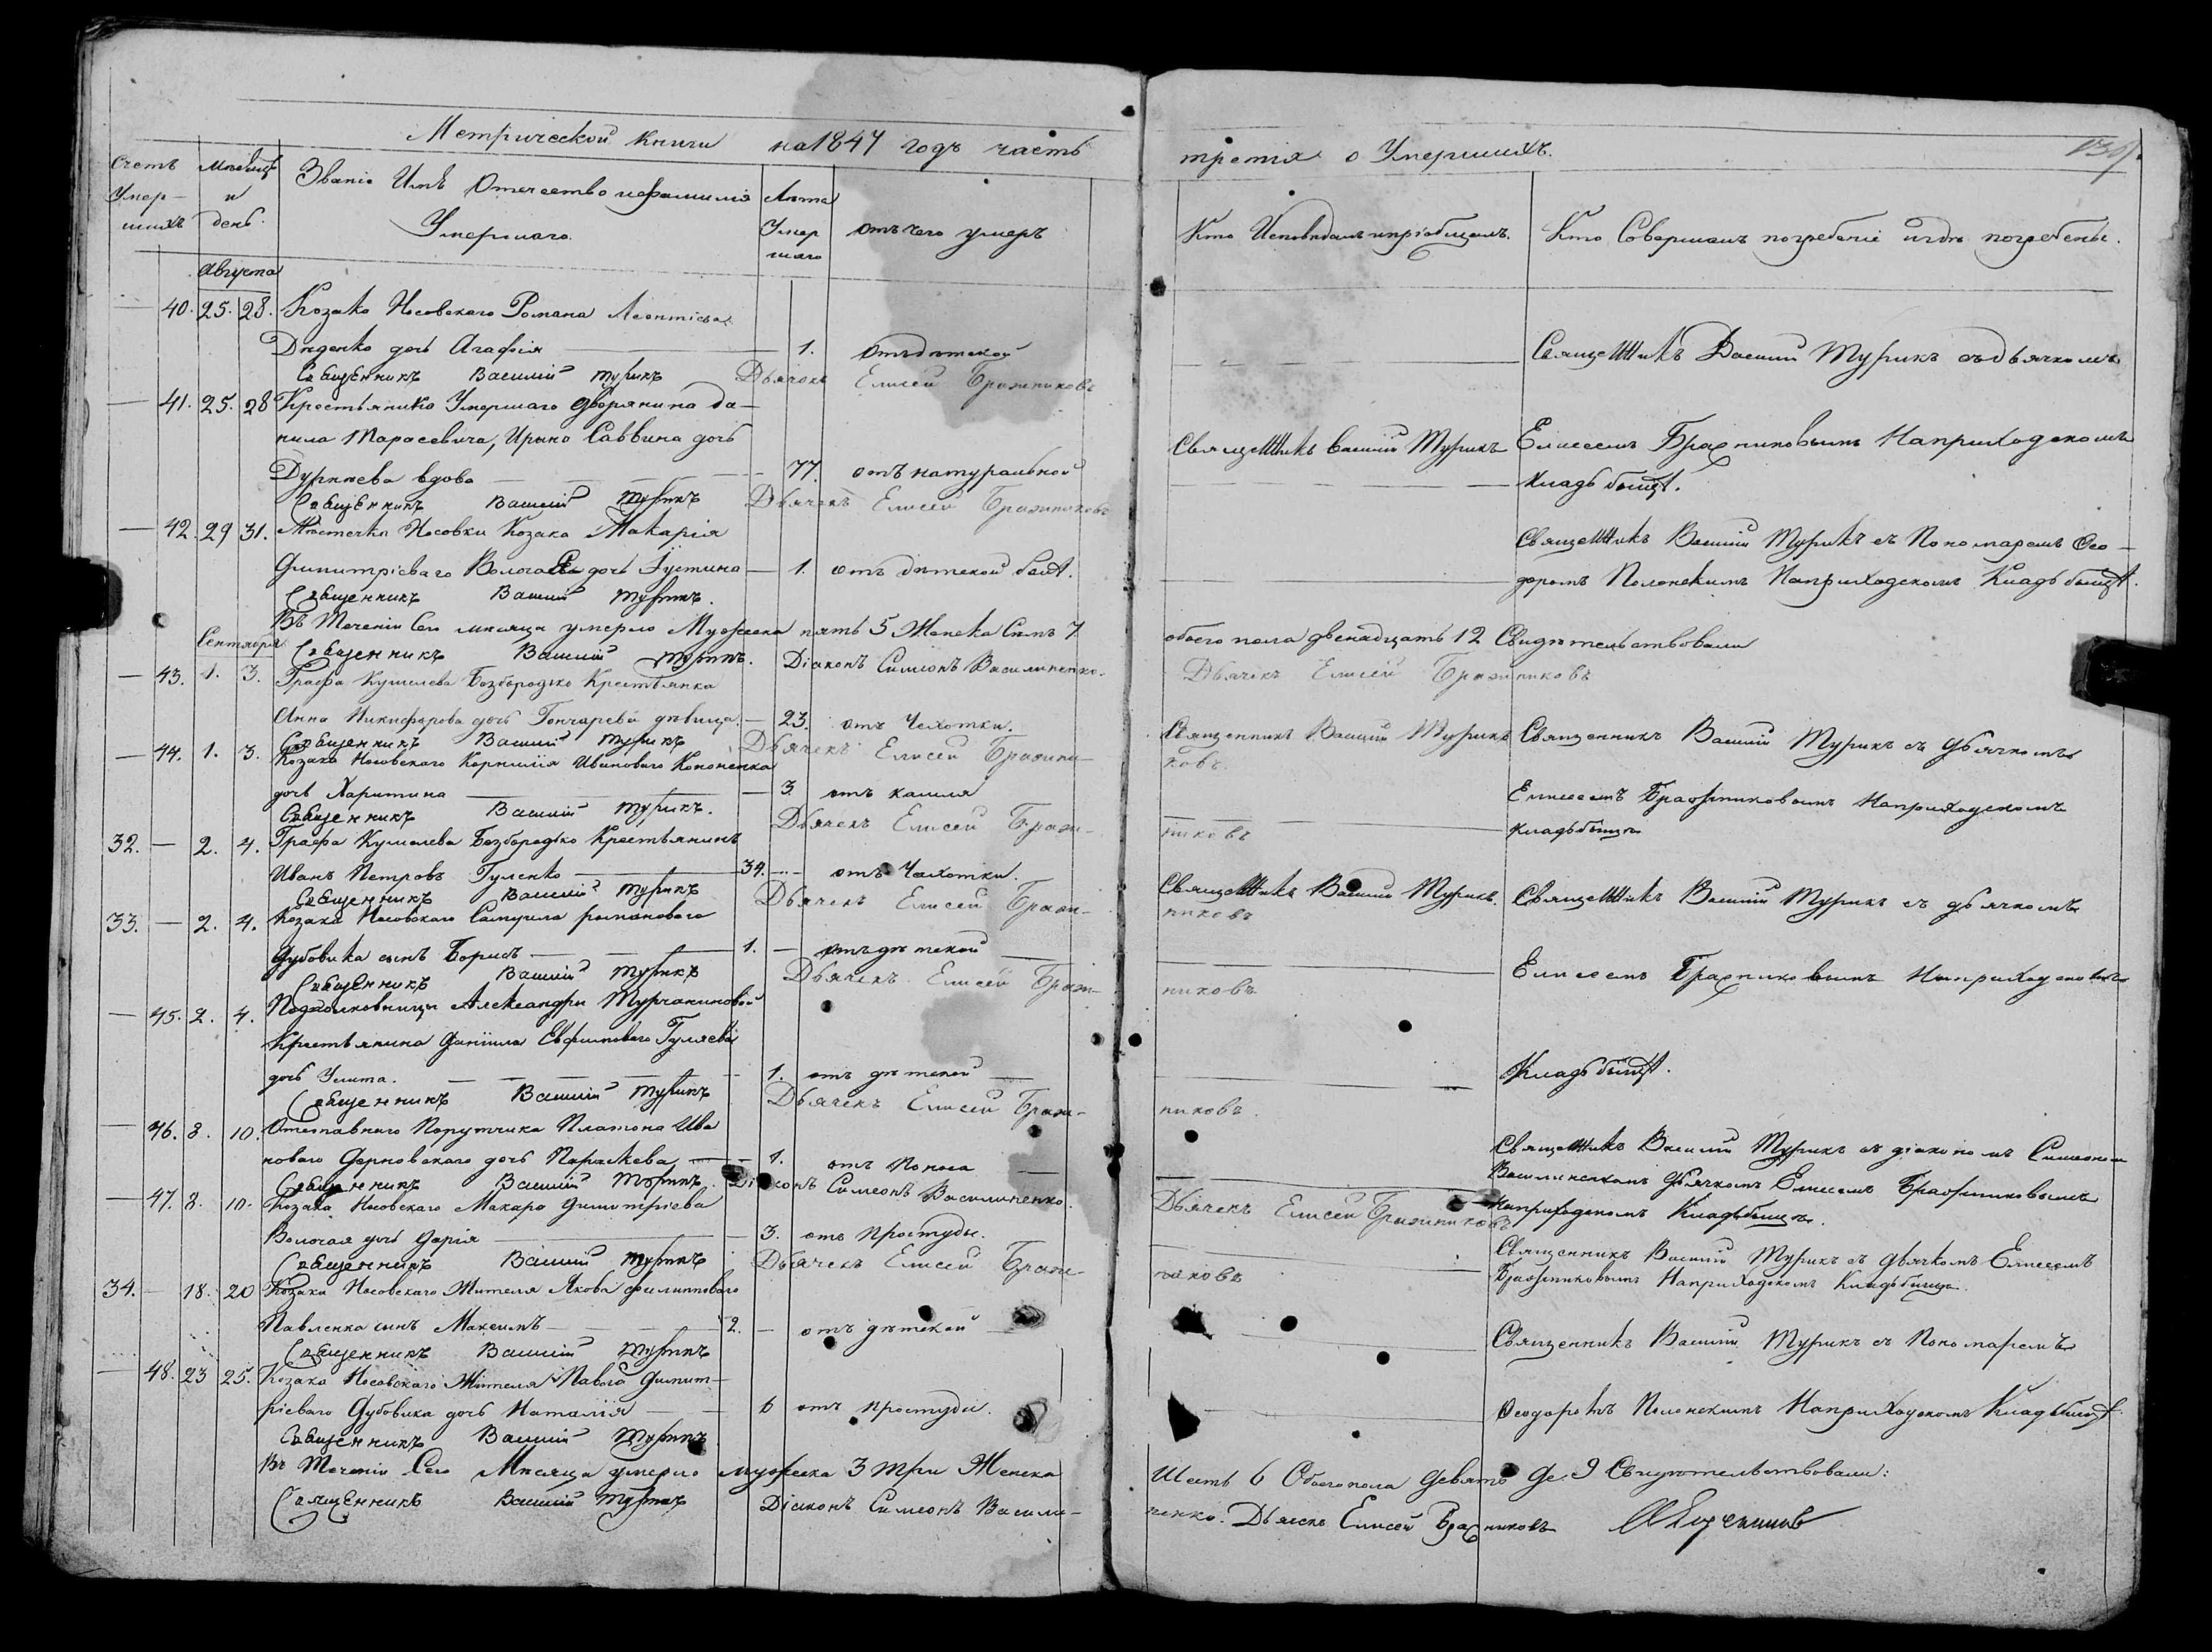 Метрической книги на 1847 годъ часть
третія о Умершихъ.
Счетъ Умер-шихъ
Мѣсяцъ и день.
Званіе Имя Отечество и фамилія
Умершаго.
Лѣта Умер шаго
Отъ чего умеръ
Кто Исповѣдалъ и пріобщалъ.
Кто Совершалъ погребеніе и гдѣ погребены.
Августа
40. 25. 28. Козака Носовскаго Романа Леонтіева
Диденко дочь Агафія 1. Отъ дѣтской
Священникъ Василій Турикъ Дьячекъ Елисей Бражниковъ
Священникъ Василій Турикъ съ дьячкомъ
41. 25. 28 Крестьянка Умершаго дворянина Да-
нила Тарасевича, Ирина Саввина дочь
Дурнева вдова 77. отъ натуральной
Священникъ Василій Турикъ Дьячекъ Елисей Бражниковъ
Священникъ Василій Турикъ
Елисеемъ Бражниковымъ На приходскомъ
кладбищѣ.
42. 29 31. Мѣстечка Носовки Козака Макарія
Димитріеваго Волога дочь Іустина 1. отъ дѣтской болѣ.
Священникъ Василій Турикъ.
Священникъ Василій Турикъ съ Пономаремъ Ѳео-
доромъ Полонскимъ На приходскомъ Кладбищѣ.
Въ Теченіи Сего мѣсяца умерло Мужеска пять 5 Женска Семь 7
обоего пола двенадцать 12 Свидѣтельствовали
Священникъ Василій Турикъ. Діаконъ Симеонъ Василиненко.
Дьячекъ Елисей Бражниковъ
Сентября
43. 1. 3. Графа Кушелева Безбородько Крестьянка
Анна Никифорова дочь Гончарева дѣвица 23. отъ Чахотки.
Священникъ Василій Турикъ Дьячекъ Елисей Бражни-
ковъ.
Священникъ Василій Турикъ
Священникъ Василій Турикъ съ дьячкомъ
44. 1. 3. Козака Носовскаго Корнилія Иванового Кононенка
дочь Харитина 3. отъ кашля
Священникъ Василій Турикъ. Дьячекъ Елисей Браж-
никовъ
Елисеемъ Бражниковымъ На приходскомъ
кладбищѣ
32. 2. 4. Графа Кушелева Безбородько Крестьянинъ
Иванъ Петровъ Гуленко 34. отъ Чахотки.
Священникъ Василій Турикъ Дьячекъ Елисей Браж-
никовъ
Священникъ Василій Турикъ.
Священникъ Василій Турикъ съ дьячкомъ
33. 2. 4. Козака Носовскаго Самуила романового
Дубовика сынъ Борисъ 1. отъ дѣтской
Священникъ Василій Турикъ Дьячекъ Елисей Браж-
никовъ
Елисеемъ Бражниковымъ На приходскомъ
45. 2. 4. Подполковницы Александры Турчаниновой
Крестьянина Даніила Евфимового Гуляева
дочь Улита. 1. отъ дѣтской
Священникъ Василій Турикъ Дьячекъ Елисей Браж-
никовъ.
Кладбищѣ.
46. 8. 10. Отставнаго Порутчика Платона Ива
новаго Дерновскаго дочь Параскева 1. отъ Поноса
Священникъ Василій Турикъ. Діаконъ Симеонъ Василиненко.
Дьячекъ Елисей Бражниковъ
Священникъ Василій Турикъ съ діакономъ Симеономъ
Василиненкомъ дьячкомъ Елисеемъ Бражниковымъ
На приходскомъ Кладбищѣ.
47. 8. 10. Козака Носовскаго Макара Димитріева
Волочая дочь Дарія 3. отъ Простуды.
Священникъ Василій Турикъ Дьячекъ Елисей Бражни-
ковъ
Священникъ Василій Турикъ съ дьячкомъ Елисеемъ
Бражниковымъ На приходскомъ Кладбищѣ.
34. 18. 20 Козака Носовскаго Жителя Якова филиппового
Павленка сынъ Максимъ 2. отъ дѣтской
Священникъ Василій Турикъ
Священникъ Василій Турикъ съ Пономаремъ
48. 23 25. Козака Носовскаго Жителя Павла Димит-
ріеваго Дубовика дочь Наталія 6 отъ простуды.
Священникъ Василій Турикъ
Ѳеодоромъ Полонскимъ На приходскомъ Кладбищѣ.
Въ Теченіи Сего Мѣсяца умерло мужеска 3 три Женска
Шесть 6 Обоего пола Девять 9 Свидѣтельствовали:
Священникъ Василій Турикъ Діаконъ Симеонъ Васили-
ненко. Дьячекъ Елисей Бражниковъ